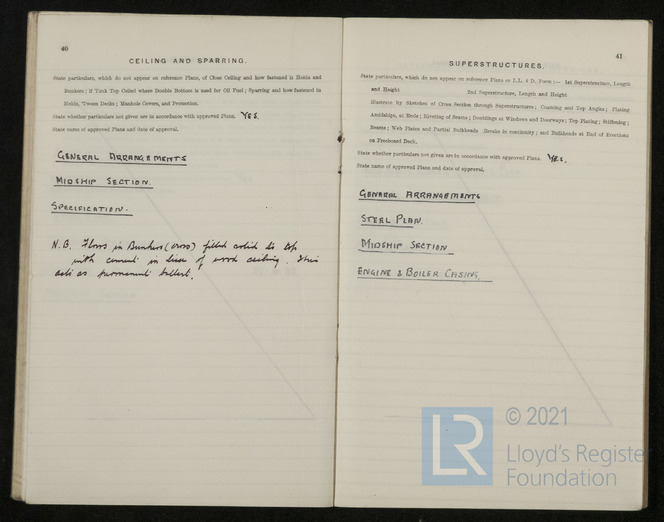 40
CEILING AND SPARRING.
State particulars, which do not appear on reference Plans, of Close Ceiling and how fastened in Holds and
Bunkers; if Tank Top Ceiled where Double Bottom is used for Oil Fuel; Sparring and how fastened in
Holds, 'Tween Decks; Manhole Covers, and Protection.
State whether particulars not given are in accordance with approved Plans. YES.
State name of approved Plans and date of approval.
GENERAL ARRANGEMENTS
MIDSHIP SECTION.
SPECIFICATION.
N.B. Floors in Bunkers (cross) filled solid to top
with cement in lieu of wood ceiling. This
acts as permanent ballast.
41
SUPERSTRUCTURES.
State particulars, which do not appear on reference Plans or L.L. 4 D. Form:— 1st Superstructure, Length
and Height 2nd Superstructure, Length and Height
Illustrate by Sketches of Cross Section through Superstructures; Coaming and Top Angles; Plating
Amidships, at Ends; Riveting of Seams; Doublings at Windows and Doorways; Top Plating; Stiffening;
Beams; Web Plates and Partial Bulkheads (Breaks in continuity; and Bulkheads at End of Erections
on Freeboard Deck.
State whether particulars not given are in accordance with approved Plans. YES.
State name of approved Plans and date of approval.
GENERAL ARRANGEMENTS
STEEL PLAN.
MIDSHIP SECTION
ENGINE & BOILER CASING.
LR
© 2021
Lloyd's Register
Foundation